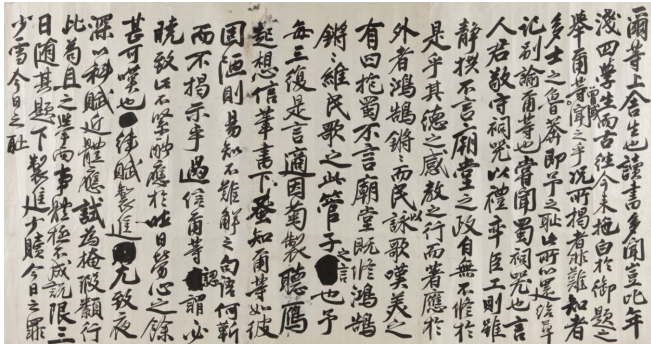 爾等上舍生也讀書多聞豈比年
淺四學生而古往今來曾或拖白於御題之
舉爾等聞之乎況所揭者非難知者
多士之魯莽即予之恥此所以還給草
記別論爾等也嘗聞蜀祠咒也言
人君敬守祠咒以禮率臣工則雖
靜拱不言廟堂之政自無不修於
是乎其德之感教之行而著應於
外者鴻鵠鏘〻而民以詠歌嘆美之
有曰抱蜀不言廟堂既修鴻鵠
鏘〻維民歌之此管子之言也予
每三復是言適因菊製聽鴈
起想信筆書下蚤知爾等如彼
固陋則易知不難解之句語何靳
而不揭示乎過信爾等認謂必
曉致此不緊酬應於吐日勞心之餘
甚可嘆也律賦製進尤致夜
深以科賦近體應試為掩瑕纇行
此苟且之擧而事體極不成說限三
日随其題下製進少贖今日之罪
少雪今日之恥